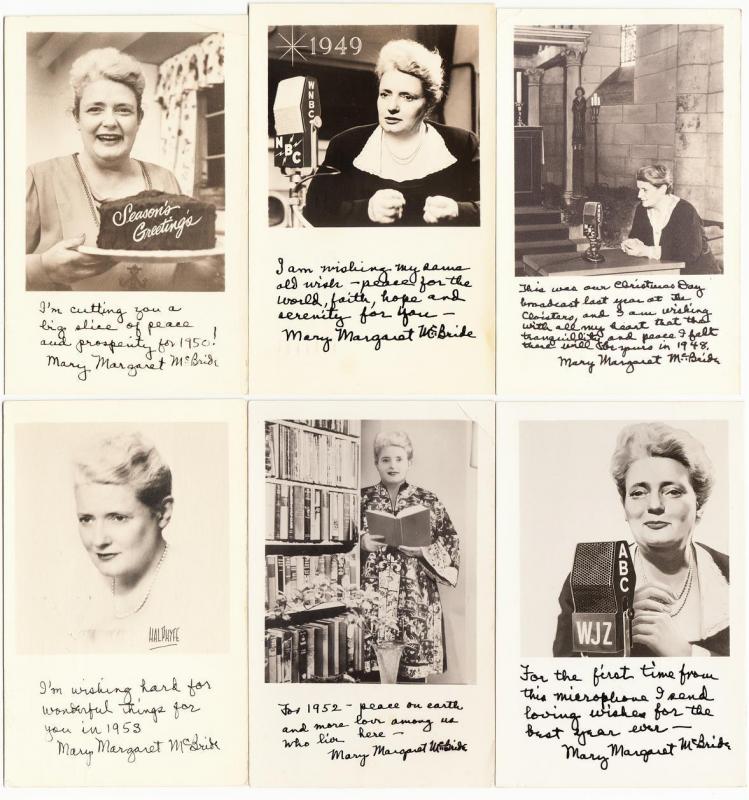 Season's
Greeting's
I'm cutting you a
big slice of peace
and prosperity for 1950!
Mary Margaret McBride
1949
WNBC
NBC
I am wishing my same
old wish - peace for the
world, faith, hope and
serenity for you -
Mary Margaret McBride
This was our Christmas Day
broadcast last year at The
Cloisters, and I am wishing
with all my heart that the
tranquillity and peace I felt
there will be yours in 1948.
Mary Margaret McBride
HAL PHYFE
I'm wishing hard for
wonderful things for
you in 1953
Mary Margaret McBride
For 1952 - peace on earth
and more love among us
who live here -
Mary Margaret McBride
ABC
WJZ
For the first time from
this microphone I send
loving wishes for the
best year ever -
Mary Margaret McBride